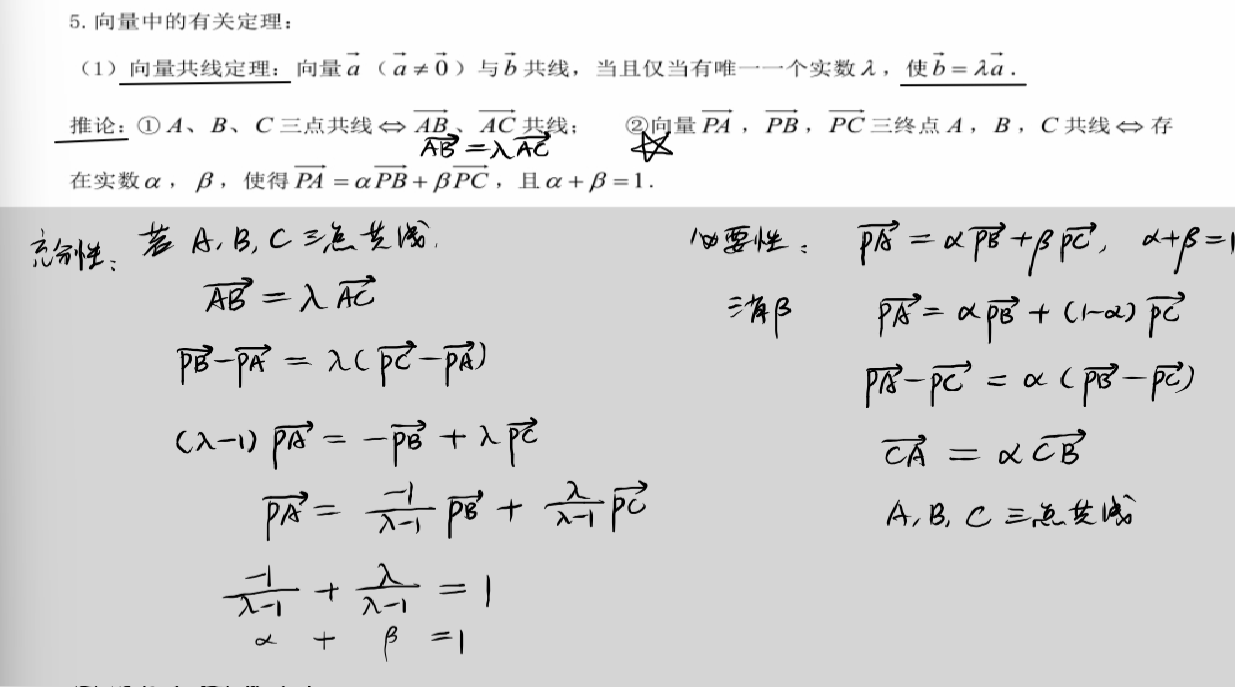 5. 向量中的有关定理：
（1）向量共线定理：向量 $\vec{a}$（$\vec{a} \neq \vec{0}$）与 $\vec{b}$ 共线，当且仅当有唯一一个实数 λ，使 $\vec{b} = λ\vec{a}$．
推论：① A、B、C 三点共线 ⇔ $\overrightarrow{AB}$、$\overrightarrow{AC}$ 共线； ②向量 $\overrightarrow{PA}$，$\overrightarrow{PB}$，$\overrightarrow{PC}$ 三终点 A，B，C 共线 ⇔ 存
$\overrightarrow{AB} = λ\overrightarrow{AC}$
在实数 α，β，使得 $\overrightarrow{PA} = α\overrightarrow{PB} + β\overrightarrow{PC}$，且 α + β = 1．
充分性： 若 A, B, C 三点共线.
$\overrightarrow{AB} = λ\overrightarrow{AC}$
$\overrightarrow{PB} - \overrightarrow{PA} = λ(\overrightarrow{PC} - \overrightarrow{PA})$
$(λ-1)\overrightarrow{PA} = -\overrightarrow{PB} + λ\overrightarrow{PC}$
$\overrightarrow{PA} = \frac{-1}{λ-1}\overrightarrow{PB} + \frac{λ}{λ-1}\overrightarrow{PC}$
$\frac{-1}{λ-1} + \frac{λ}{λ-1} = 1$
α + β = 1
必要性： $\overrightarrow{PA} = α\overrightarrow{PB} + β\overrightarrow{PC}$, α+β=1
消β $\overrightarrow{PA} = α\overrightarrow{PB} + (1-α)\overrightarrow{PC}$
$\overrightarrow{PA} - \overrightarrow{PC} = α(\overrightarrow{PB} - \overrightarrow{PC})$
$\overrightarrow{CA} = α\overrightarrow{CB}$
A, B, C 三点共线